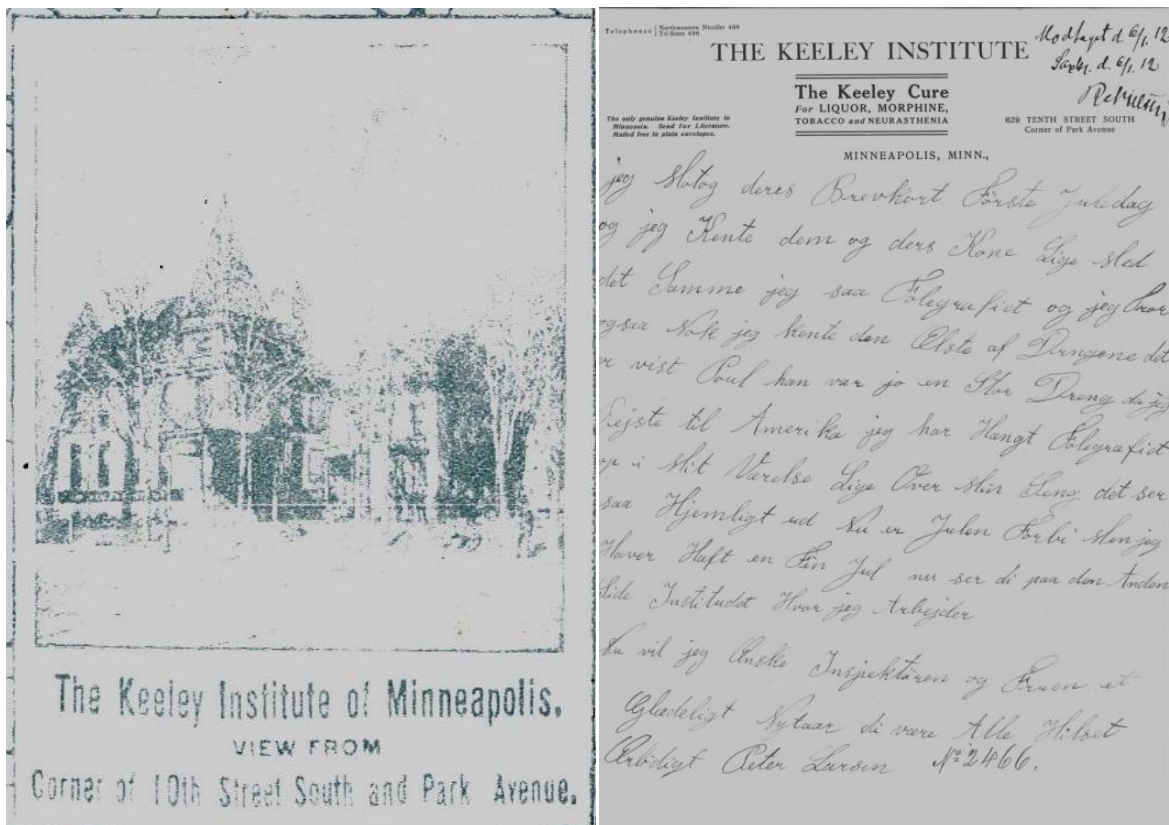 The Keeley Institute of Minneapolis.
VIEW FROM
Corner of 10th Street South and Park Avenue.
Telephones Northwestern Nicollet 496
Tri-State 496
THE KEELEY INSTITUTE
Modtaget d. 6/1. 12
d. 6/1. 12
The Keeley Cure
For LIQUOR, MORPHINE,
TOBACCO and NEURASTHENIA
The only genuine Keeley Institute in
Minnesota. Send for Literature.
Mailed free in plain envelopes.
629 TENTH STREET SOUTH
Corner of Park Avenue
MINNEAPOLIS, MINN.,
jeg Motog deres Brevkort Förste Juledag
og jeg Kente dem og ders Kone Lige med
det Samme jeg saa Fotegrafiet og jeg Tror
ogsaa Nok jeg kente den Ælste af Drngene det
er vist Poul han var jo en Stor Dreng da jeg
Rejste til Amerika jeg har Hængt Fotegrafiet
op i Mit Værelse Lige Over Min Seng det ser
saa Hjemligt ud Nu er Julen Forbi Men jeg
Haver Haft en Fin Jul nu ser di paa den Anden
Side Institudet Hvor jeg Arbejder
Nu vil jeg Ønske Inspektören og Fruen et
Glædeligt Nytaar di være Alle Hilset
Ærbödigt Peter Larsen No 2466.